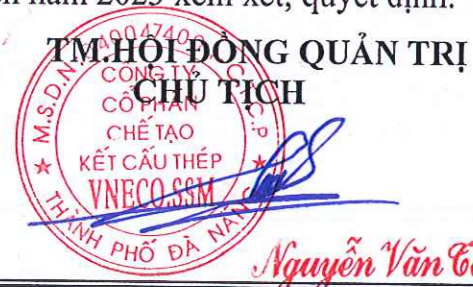 năm 2023 xem xét, quyết định.
TM.HỘI ĐỒNG QUẢN TRỊ
CHỦ TỊCH
M.S.D.N
C.T.C.P
CÔNG TY
CỔ PHẦN
CHẾ TẠO
KẾT CẤU THÉP
VNECO.SSM
THÀNH PHỐ ĐÀ NẴNG
Nguyễn Văn